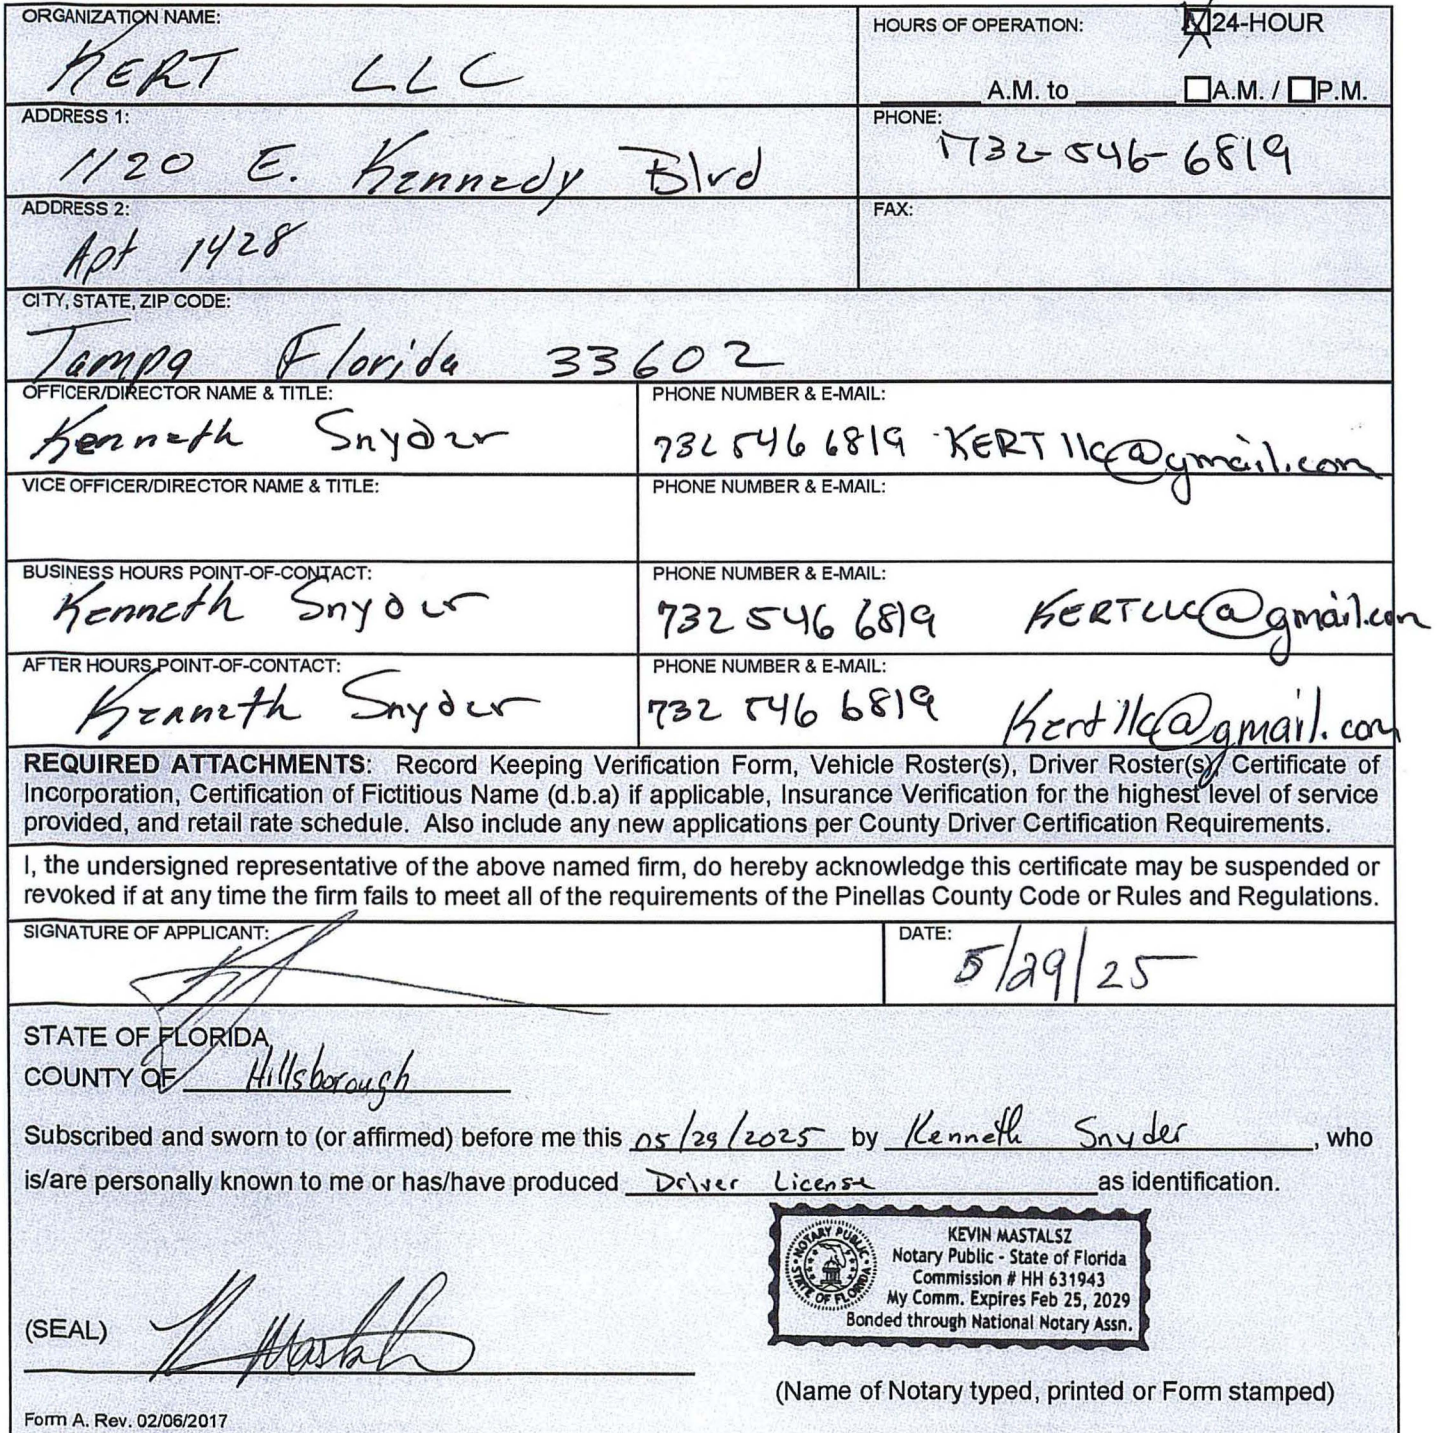 ORGANIZATION NAME:
KERT LLC
HOURS OF OPERATION: 24-HOUR
A.M. to A.M. / P.M.
ADDRESS 1:
1120 E. Kennedy Blvd
PHONE:
1732-546-6819
ADDRESS 2:
Apt 1428
FAX:
CITY, STATE, ZIP CODE:
Tampa Florida 33602
OFFICER/DIRECTOR NAME & TITLE:
Kenneth Snyder
PHONE NUMBER & E-MAIL:
732 546 6819 KERTllc@gmail.com
VICE OFFICER/DIRECTOR NAME & TITLE:
PHONE NUMBER & E-MAIL:
BUSINESS HOURS POINT-OF-CONTACT:
Kenneth Snyder
PHONE NUMBER & E-MAIL:
732 546 6819 KERTLLC@gmail.com
AFTER HOURS POINT-OF-CONTACT:
Kenneth Snyder
PHONE NUMBER & E-MAIL:
732 546 6819 Kertllc@gmail.com
REQUIRED ATTACHMENTS: Record Keeping Verification Form, Vehicle Roster(s), Driver Roster(s), Certificate of
Incorporation, Certification of Fictitious Name (d.b.a) if applicable, Insurance Verification for the highest level of service
provided, and retail rate schedule. Also include any new applications per County Driver Certification Requirements.
I, the undersigned representative of the above named firm, do hereby acknowledge this certificate may be suspended or
revoked if at any time the firm fails to meet all of the requirements of the Pinellas County Code or Rules and Regulations.
SIGNATURE OF APPLICANT:
DATE:
5/29/25
STATE OF FLORIDA
COUNTY OF Hillsborough
Subscribed and sworn to (or affirmed) before me this 05/29/2025 by Kenneth Snyder, who
is/are personally known to me or has/have produced Driver License as identification.
NOTARY PUBLIC
STATE OF FLORIDA
KEVIN MASTALSZ
Notary Public - State of Florida
Commission # HH 631943
My Comm. Expires Feb 25, 2029
Bonded through National Notary Assn.
(SEAL)
(Name of Notary typed, printed or Form stamped)
Form A. Rev. 02/06/2017